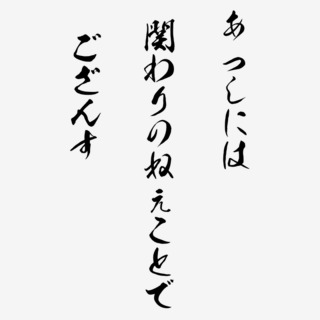 あっしには
関わりのねぇことで
ござんす